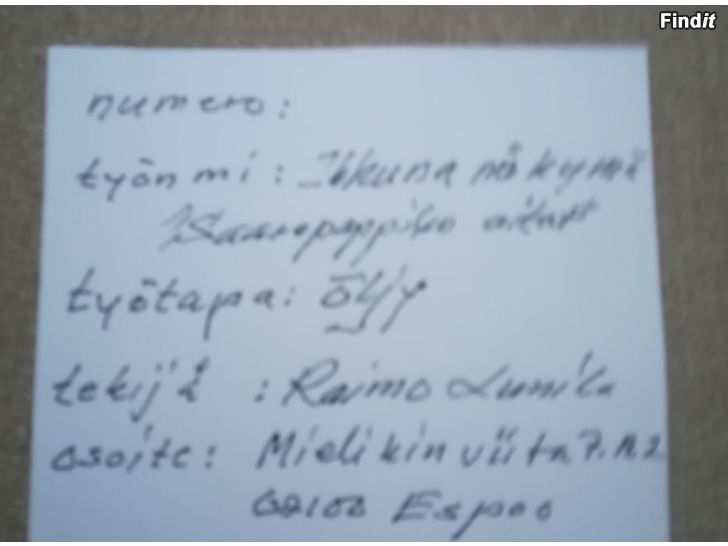 Findit
numero:
työn mi : Ikkuna näkymä
työtapa: öljy
tekijä : Raimo
osoite: Mielikinviita 7.A.2
02100 Espoo